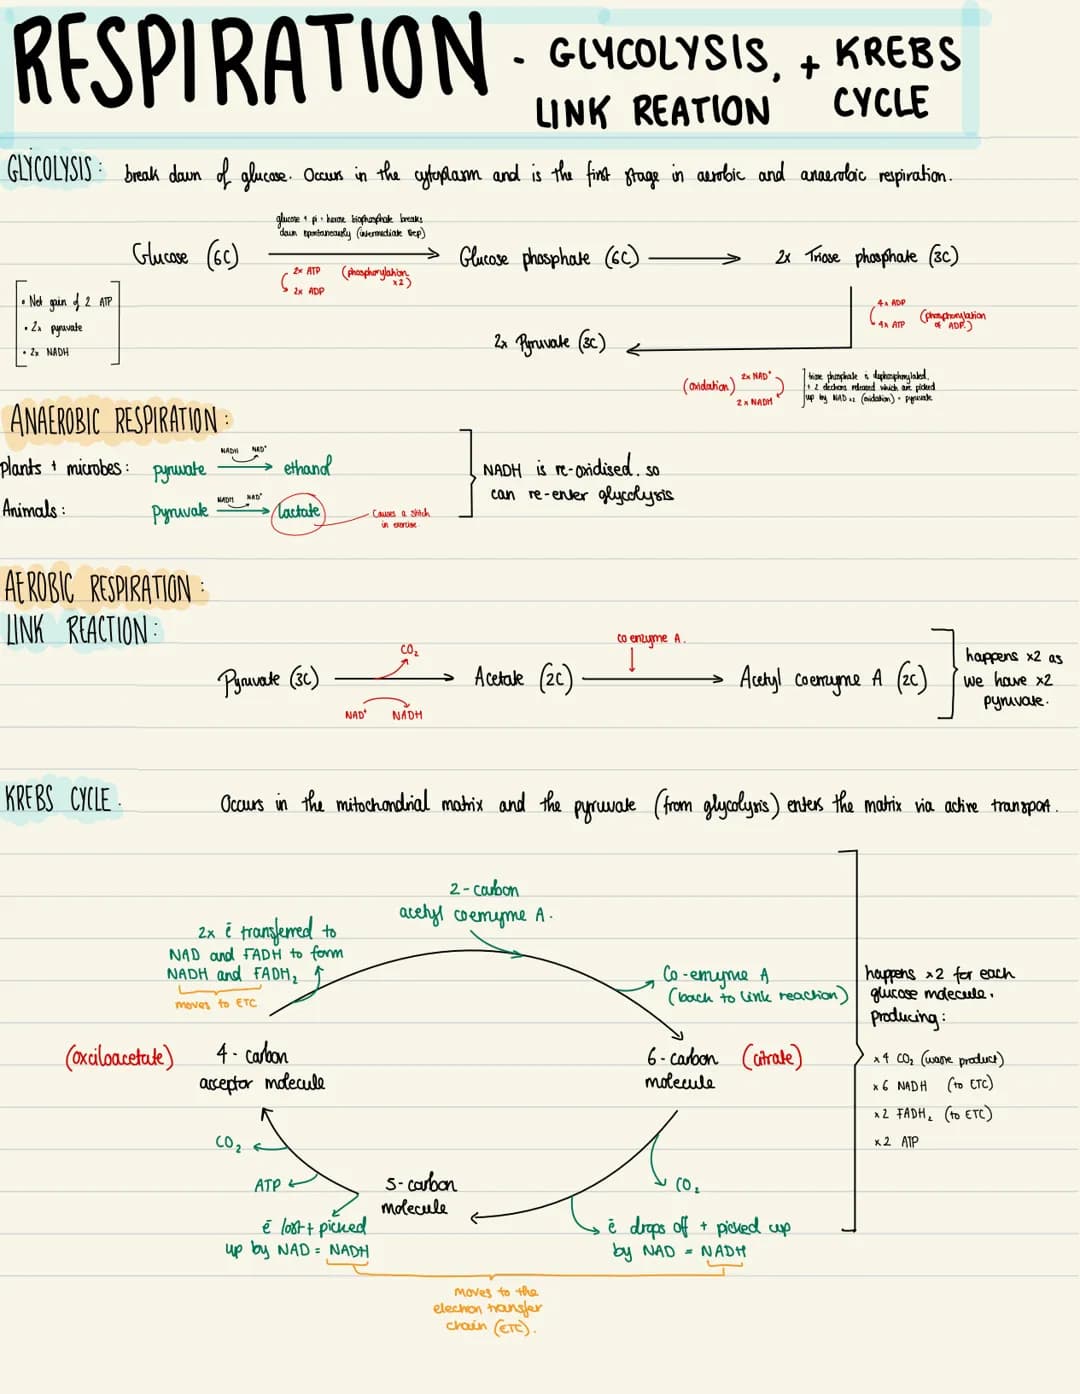 RESPIRATION - GLYCOLYSIS, + KREBS
LINK REATION CYCLE
GLYCOLYSIS: break down of glucose. Occurs in the cytoplasm and is the first stage in aerobic and anaerobic respiration.
glucose + pi = hexose bisphosphate breaks
down spontaneously (intermediate step)
Glucose (6C)
Glucose phosphate (6C)
2x Triose phosphate (3C)
2x ATP
2x ADP
(phosphorylation
x2)
• Net gain of 2 ATP
• 2x pyruvate
• 2x NADH
4x ADP
4x ATP
(phosphorylation
of ADP.)
2x Pyruvate (3C)
(oxidation)
2x NAD⁺
2x NADH
triose phosphate is dephosphorylated.
+ 2 electrons released which are picked
up by NAD x2 (oxidation) = pyruvate
ANAEROBIC RESPIRATION:
plants + microbes: pyruvate
NADH NAD⁺
ethanol
Animals: Pyruvate
NADH NAD⁺
Lactate
Causes a stitch
in exercise
NADH is re-oxidised. so
can re-enter glycolysis
AEROBIC RESPIRATION:
LINK REACTION:
Pyruvate (3C)
CO₂
NAD⁺ NADH
Acetate (2C)
co enzyme A.
Acetyl coenzyme A (2C)
happens x2 as
we have x2
pyruvate.
KREBS CYCLE.
Occurs in the mitochondrial matrix and the pyruvate (from glycolysis) enters the matrix via active transport.
2-carbon
acetyl coenzyme A.
2x ē transferred to
NAD and FADH to form
NADH and FADH₂
moves to ETC
Co-enzyme A
(back to link reaction)
(oxciloacetate)
4-carbon
acceptor molecule
6-carbon
molecule
(citrate)
CO₂
ATP
5-carbon
molecule
CO₂
ē lost + picked
up by NAD = NADH
ē drops off + picked up
by NAD = NADH
moves to the
electron transfer
chain (ETC).
happens x2 for each
glucose molecule.
Producing:
x4 CO₂ (waste product)
x6 NADH (to ETC)
x2 FADH₂ (to ETC)
x2 ATP